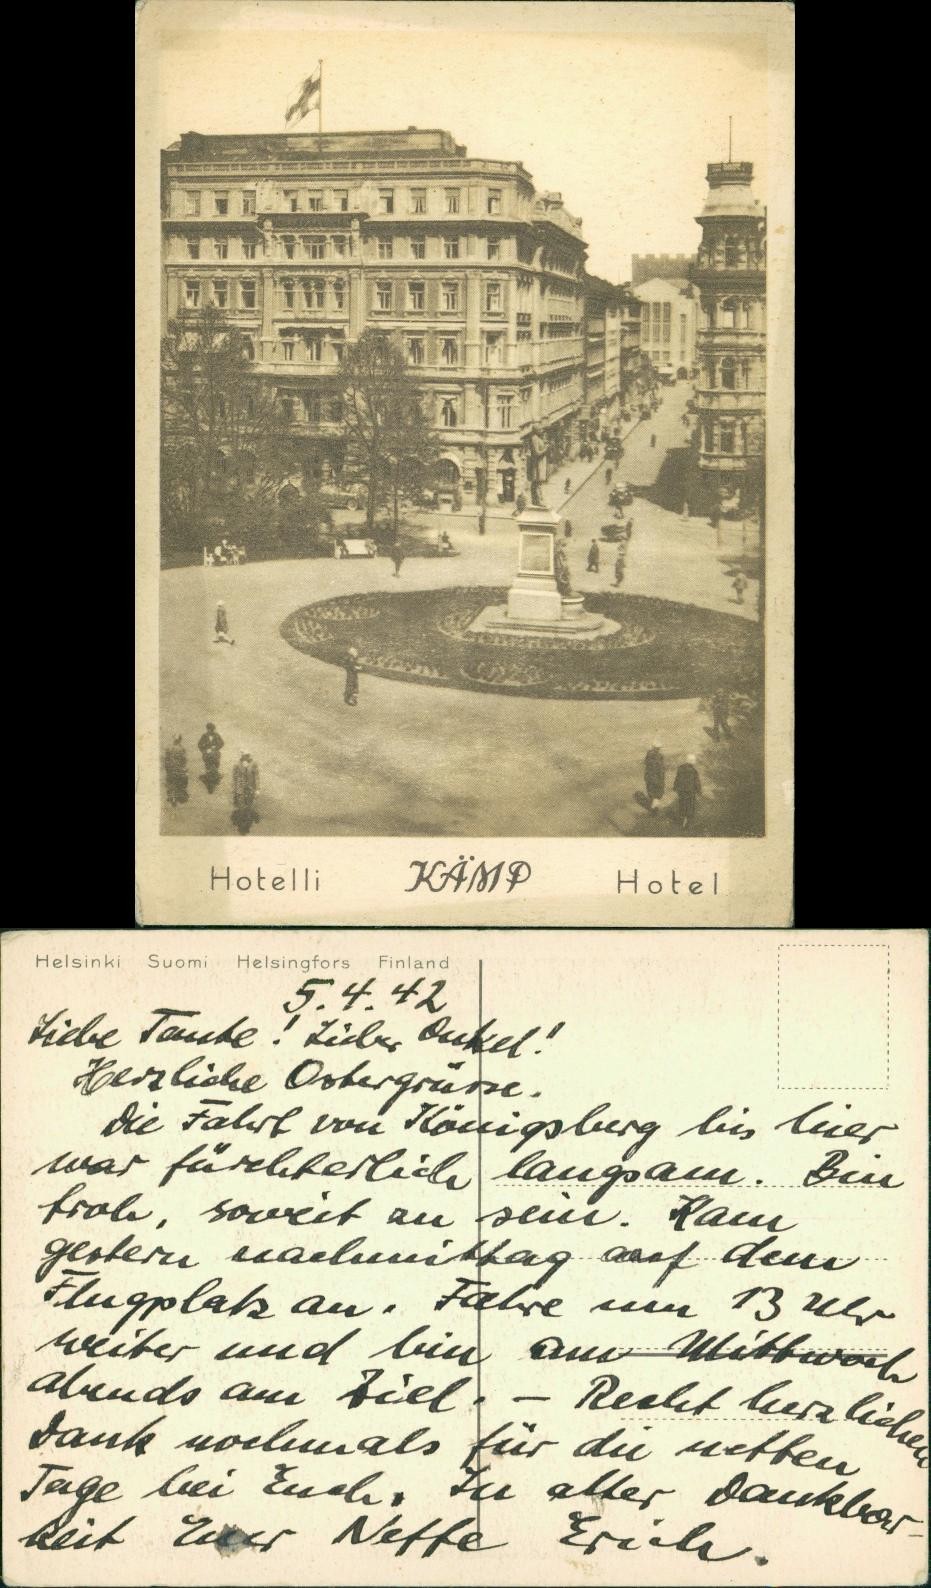 Hotelli KÄMP Hotel
Helsinki Suomi Helsingfors Finland
5.4.42
Liebe Tante! Lieber Onkel!
Herzliche Ostergrüsse.
Die Fahrt von Königsberg bis hier
war fürchterlich langsam. Bin
froh, soweit zu sein. Kam
gestern nachmittag auf dem
Flugplatz an. Fahre um 13 Uhr
weiter und bin am Mittwoch
abends am Ziel. – Recht herzlichen
Dank nochmals für die netten
Tage bei Euch. In alter Dankbar-
keit Euer Neffe Erich.